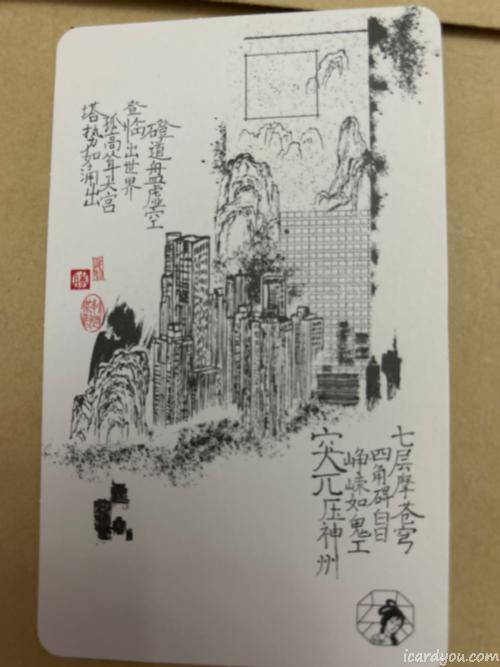 塔势如涌出
孤高耸天宫
登临出世界
磴道盘虚空
突兀压神州
峥嵘如鬼工
四角碍白日
七层摩苍穹
icardyou.com